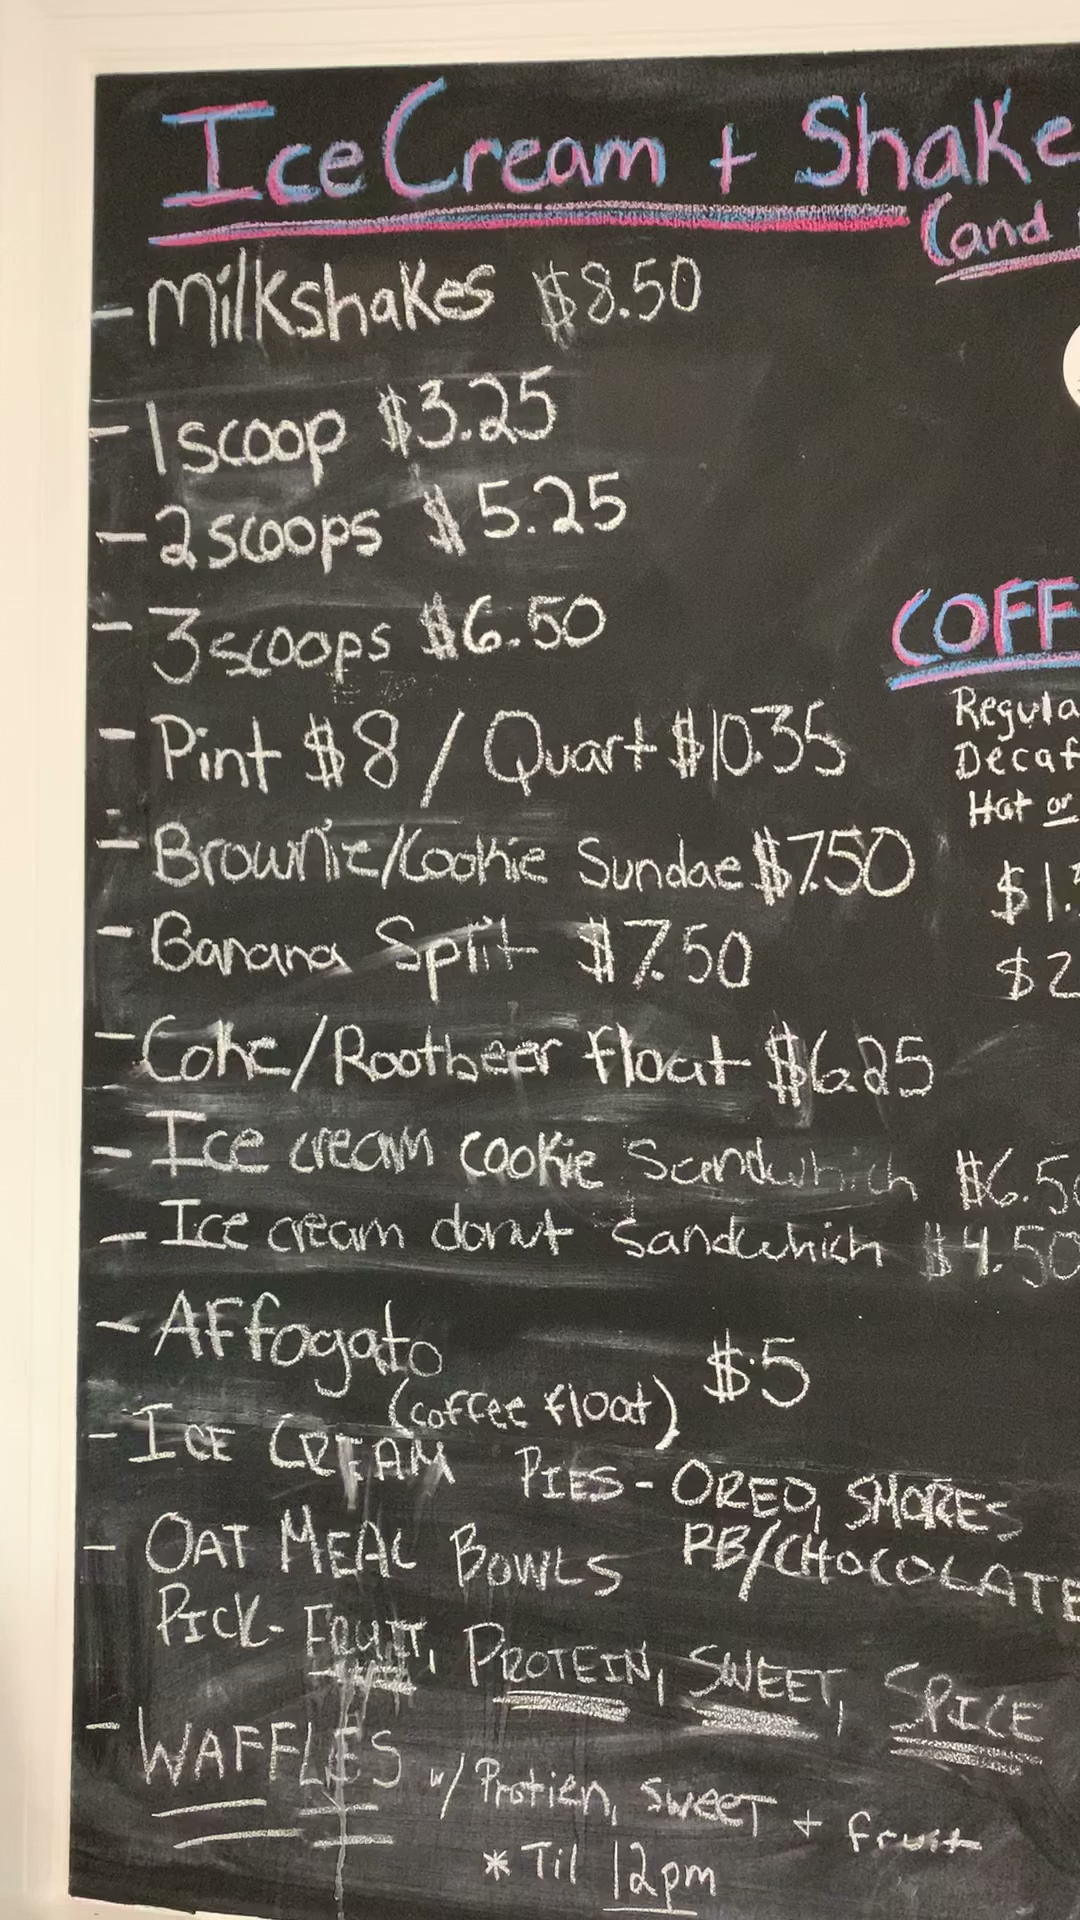 Ice Cream + Shake
(and
- Milkshakes $8.50
- 1 scoop $3.25
- 2 scoops $5.25
- 3 scoops $6.50
- Pint $8 / Quart $10.35
- Brownie/Cookie Sundae $7.50
- Banana Split $7.50
- Coke/Rootbeer float $6.25
- Ice cream cookie Sandwhich $6.50
- Ice cream donut Sandwhich $4.50
- Affogato $5
(coffee float)
- ICE CREAM PIES - OREO, SMORES
PB/CHOCOLATE
- OAT MEAL BOWLS
PICK - FRUIT, PROTEIN, SWEET, SPICE
- WAFFLES w/ Protien, sweet + fruit
* Til 12pm
COFF
Regula
Decaf
Hot or
$1.
$2